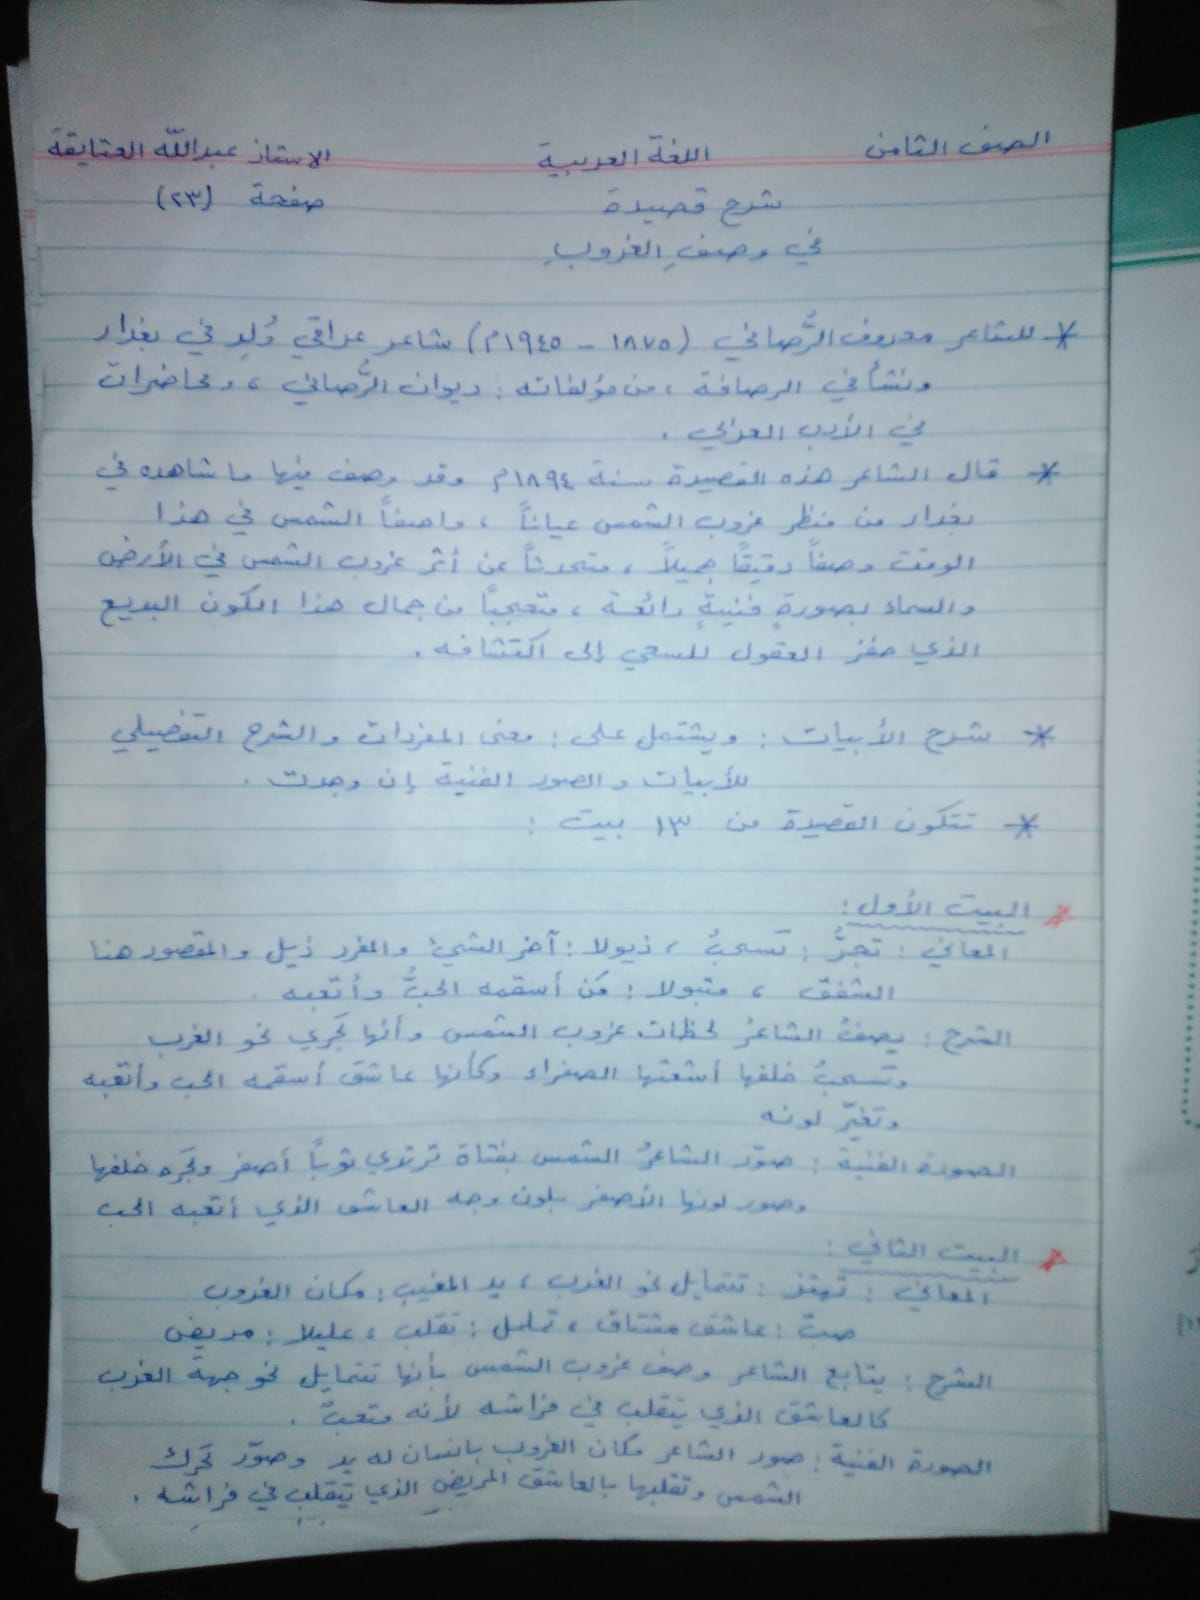 الصف الثامن اللغة العربية الاستاذ عبدالله العتايقة
شرح قصيدة صفحة (٢٣)
في وصفِ الغروبِ
* للشاعر معروف الرُّصافي (١٨٧٥ - ١٩٤٥م) شاعر عراقي وُلِد في بغداد
ونشأ في الرصافة ، من مؤلفاته : ديوان الرُّصافي ، ومحاضرات
في الأدب العربي .
* قال الشاعر هذه القصيدة سنة ١٨٩٤م وقد وصف فيها ما شاهده في
بغداد من منظر غروب الشمس عياناً ، واصفاً الشمس في هذا
الوقت وصفاً دقيقاً جميلاً ، متحدثاً عن أثر غروب الشمس في الأرض
والسماء بصورةٍ فنيةٍ رائعة ، متعجباً من جمال هذا الكون البديع
الذي حفز العقول للسعي إلى اكتشافه .
* شرح الأبيات : ويشتمل على : معنى المفردات والشرح التفصيلي
للأبيات والصور الفنية إن وجدت .
* تتكون القصيدة من ١٣ بيت :
* البيت الأول :
المعاني : تجرُّ : تسحبُ ، ذيولا : آخر الشيء والمفرد ذيل والمقصود هنا
الشفق ، متبولا : مَن أسقمه الحبُّ وأتعبه .
الشرح : يصفُ الشاعرُ لحظات غروب الشمس وأنها تَجري نحو الغرب
وتسحبُ خلفها أشعتها الصفراء وكأنها عاشق أسقمه الحب وأتعبه
وتغيّر لونه
الصورة الفنية : صوّر الشاعرُ الشمس بفتاة ترتدي ثوباً أصفر وتَجره خلفها
وصور لونها الأصفر بلون وجه العاشق الذي أتعبه الحب
* البيت الثاني :
المعاني : تهتز : تتمايل نحو الغرب ، يد المغيب : مكان الغروب
صبّ : عاشق مشتاق ، تململ : تقلب ، عليلا : مريض
الشرح : يتابع الشاعر وصف غروب الشمس بأنها تتمايل نحو جهة الغرب
كالعاشق الذي يتقلب في فراشه لأنه متعبٌ .
الصورة الفنية : صور الشاعر مكان الغروب بانسان له يد وصوّر تَحرك
الشمس وتقلبها بالعاشق المريض الذي يتقلب في فراشه .